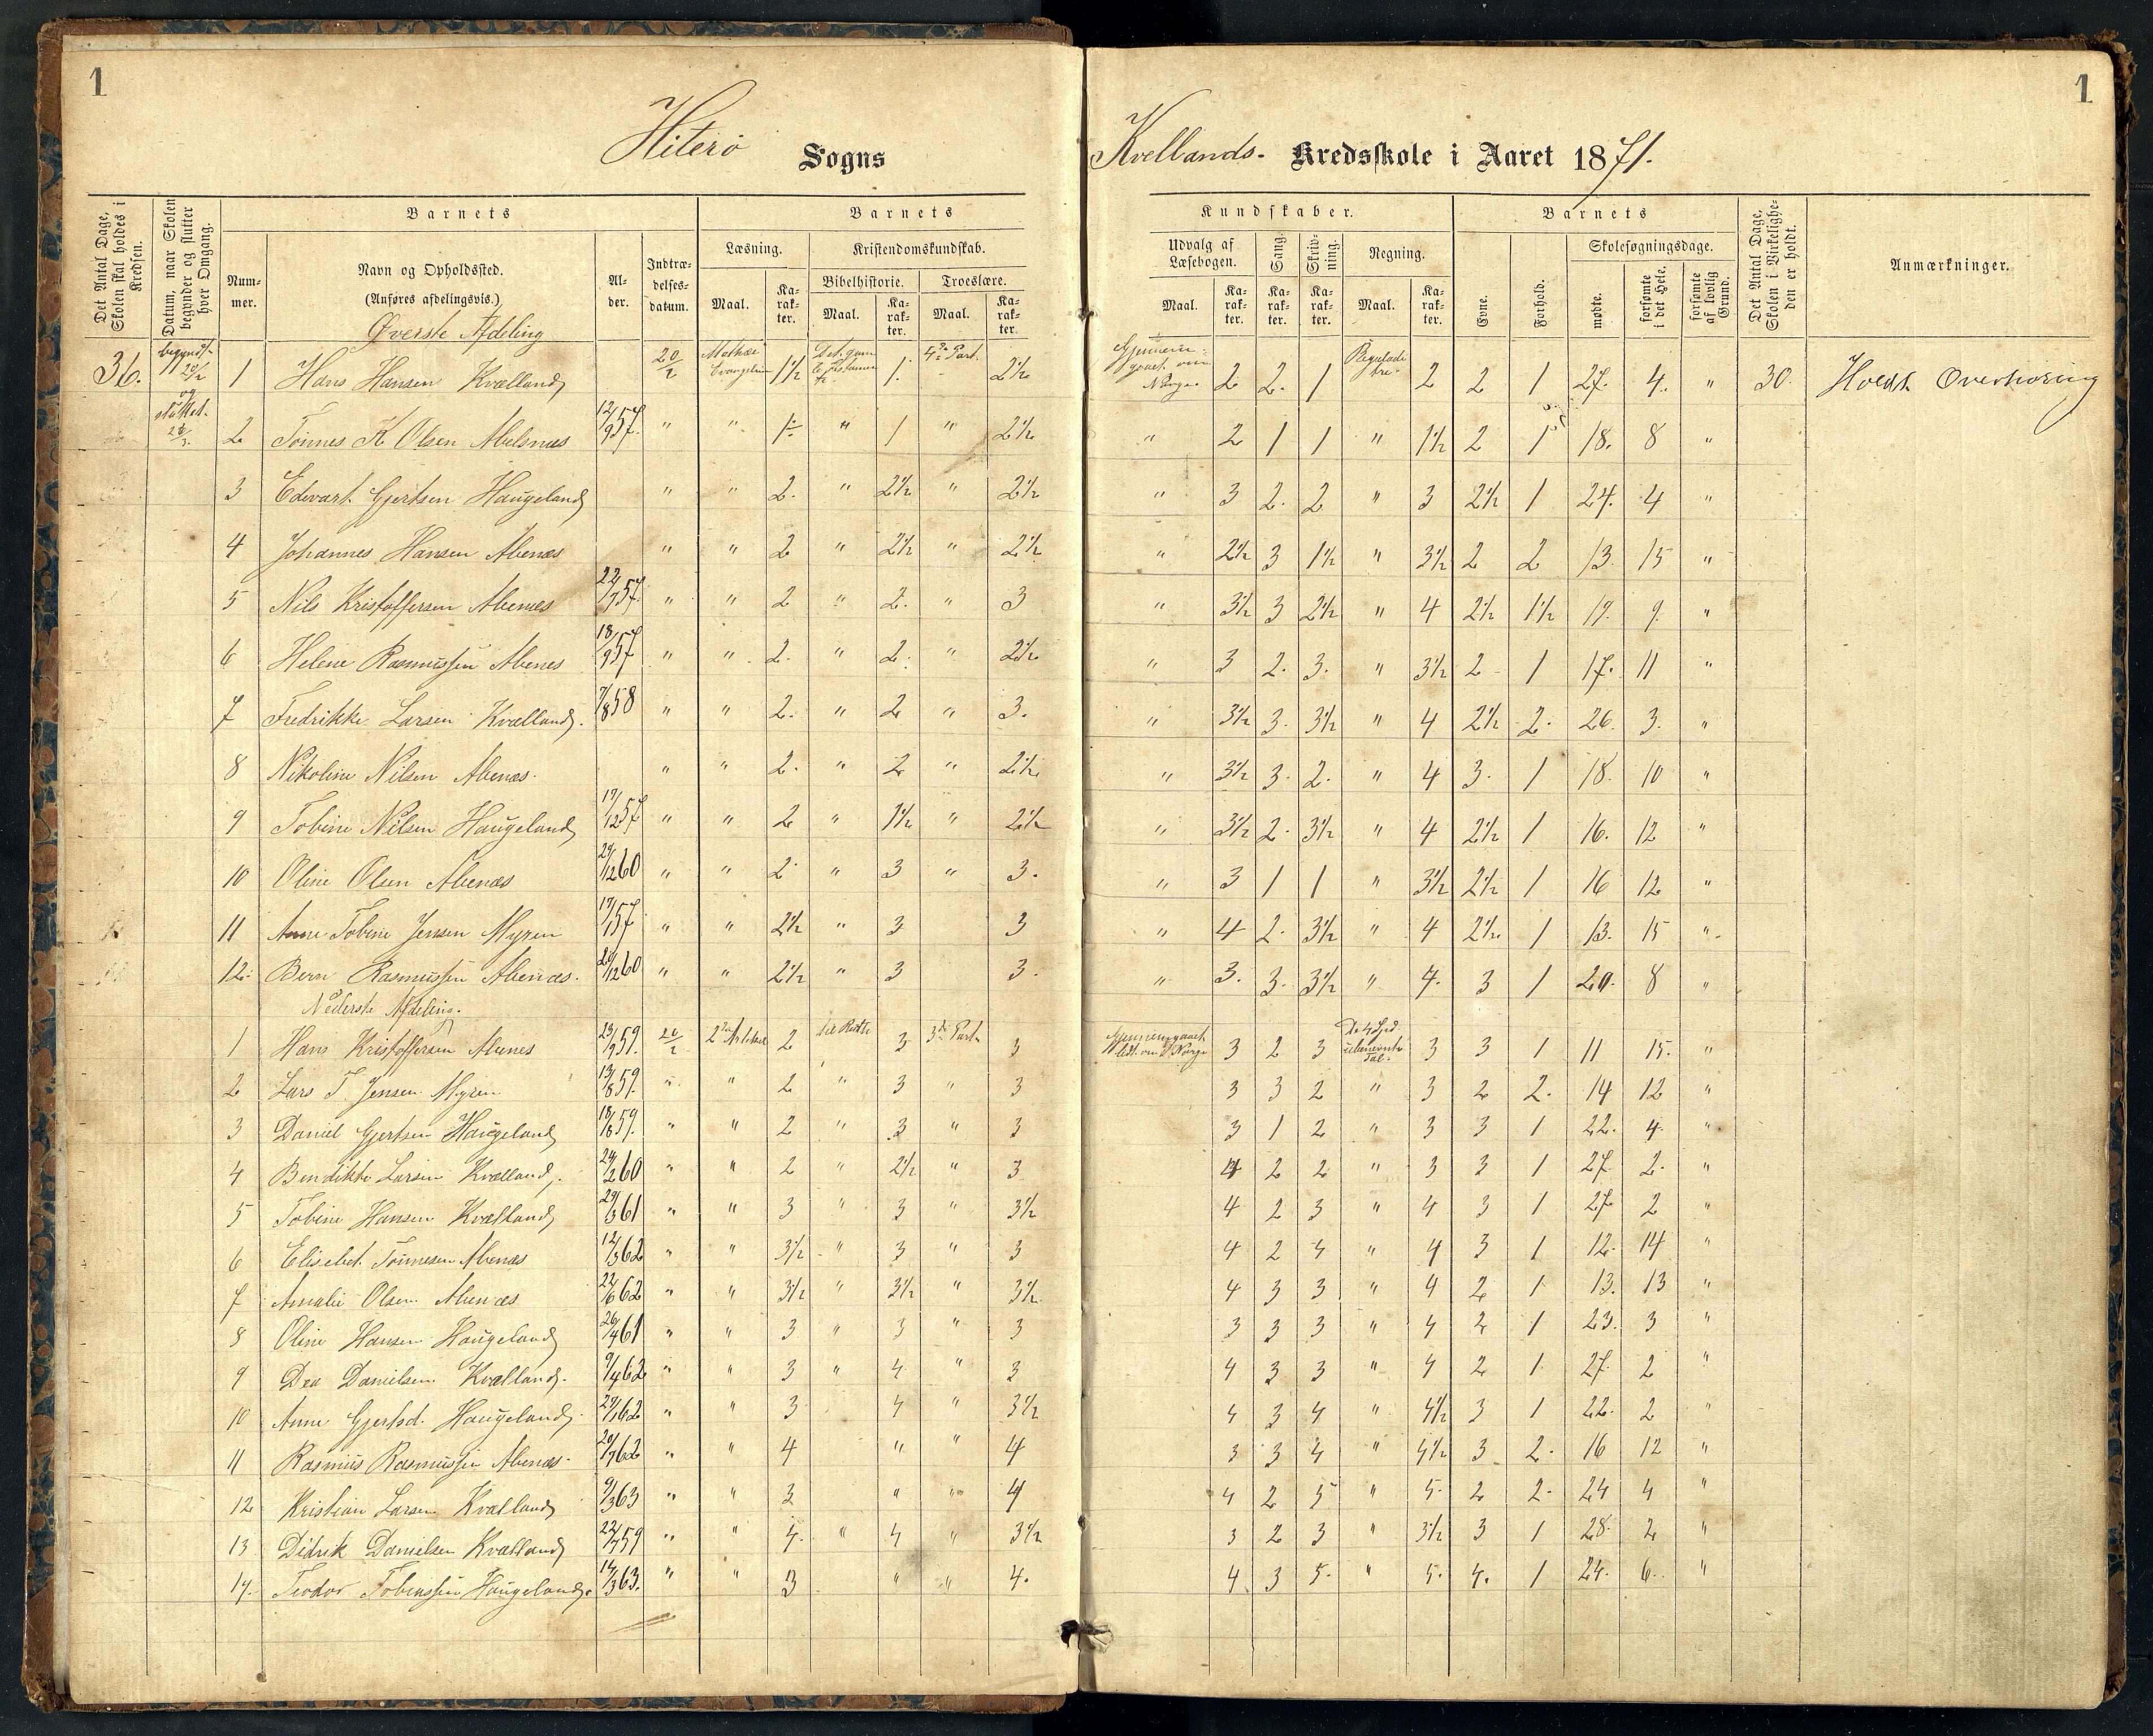 1
1
Hiterö Sogns
Kvellands- Kredsskole i Aaret 1871.
Det Antal Dage, Skolen skal holdes i Kredsen.
Datum, naar Skolen begynder og slutter hver Omgang.
Barnets
Barnets
Kundskaber.
Barnets
Det Antal Dage, Skolen i Virkeligheden er holdt.
Anmærkninger.
Nummer.
Navn og Opholdssted.
(Anføres afdelingsvis.)
Alder.
Indtrædelsesdatum.
Læsning.
Kristendomskundskab.
Bibelhistorie.
Troeslære.
Maal.
Karakter.
Maal.
Karakter.
Maal.
Karakter.
Udvalg af Læsebogen.
Sang.
Skrivning.
Regning.
Maal.
Karakter.
Karakter.
Karakter.
Maal.
Karakter.
Evne.
Forhold.
Skolesøgningsdage.
mødte.
forsømte i det Hele.
forsømte af lovlig Grund.
Øverste Afdeling
36. begyndt 20/2 og sluttet 1 Hans Hansen Kvælland 20/2 1½ 1. 2½ 2 2. 1 2 2 1 27. 4. " 30. Holdt Overhöring
2 Tönnes K Olsen Abelsnæs 12/9 57. " " 1½ " 1 " 2½ " 2 1 1 " 1½ 2 1 18. 8 "
3 Edvart Gjertsen Haugeland " " 2. " 2½ " 2½ " 3 2. 2 " 3 2½ 1 24. 4 "
4 Johannes Hansen Abenæs " " 2 " 2½ " 2½ " 2½ 3 1½ " 3½ 2 2 13. 15 "
5 Nils Kristoffersen Abenæs 22/7 57. " " 2 " 2. " 3 " 3½ 3 2½ " 4 2½ 1½ 19. 9. "
6 Helene Rasmussen Abenes 18/9 57 " " 2. " 2. " 2½ " 3 2. 3. " 3½ 2 1 17. 11 "
7 Fredrikke Larsen Kvælland. 7/8 58 " " 2. " 2 " 3. " 3½ 3. 3½ " 4 2½ 2. 26. 3. "
8 Nikoline Nilsen Abenæs. " " 2. " 2 " 2½ " 3½ 3. 2. " 4 3. 1 18. 10 "
9 Tobine Nilsen Haugeland 19/12 57 " " 2 " 1½ " 2½ " 3½ 2. 3½ " 4 2½ 1 16. 12 "
10 Oline Olsen Abenæs 29/12 60 " " 2 " 3 " 3. " 3 1 1 " 3½ 2½ 1 16 12 "
11 Anne Tobine Jensen Myren 19/1 57 " " 2½ " 3 3 " 4 2. 3½ " 4 2½ 1 13. 15 "
12. Bern Rasmussen Abenæs. 20/12 60 " " 2½ " 3 3. " 3. 3. 3½ " 4. 3 1 20. 8 "
Nederste Afdeling.
1 Hans Kristoffersen Abenes 23/9 59. 20/2 2 3 3 3 2 3 3 3 1 11 15. "
2 Lars T. Jensen Myren 13/8 59. " " 2 " 3 " 3 3 3 2 " 3 2 2. 14 12 "
3 Daniel Gjertsen Haugeland 18/6 59. " " 2 " 3 " 3 3 1 2 " 3 3 1 22. 4. "
4 Bendikte Larsen Kvælland. 24/2 60 " " 2 " 2½ " 3 4 2 2 " 3 3 1 27. 2. "
5 Tobine Hansen Kvælland 29/3 61 " " 3 " 3 " 3½ 4 2 3 " 4 3 1 27 2 "
6 Elisebet Tönnesen Abenæs 12/3 62 " " 3½ " 3 " 3 4 2 4 " 4 3 1 12. 14 "
7 Amalie Olsen Abenæs 22/6 62 " " 3½ " 3½ " 3½ 4 3 3 " 4 2 1 13. 13 "
8 Oline Hansen Haugeland 26/4 61 " " 3 " 3 " 3 3 3 3 " 4 2 1 23. 3 "
9 Dea Danielsen Kvælland. 9/4 62 " " 3 " 4 " 3 4 3 3 " 4 2 1 27. 2 "
10 Anne Gjertsd. Haugeland 29/1 62 " " 3 4 " 3½ 4 3 4 " 4½ 3 1 22. 2 "
11 Rasmus Rasmussen Abenæs. 20/7 62 " " 4 " " 4 3 3 4 " 4½ 3 2. 16 12 "
12 Kristian Larsen Kvælland 9/3 63 " " 3 " " 4 4 2 5 " 5. 2 2. 24 4 "
13 Didrik Danielsen Kvælland 22/7 59 " " 4. " 4 " 3½ 3 2 3 " 3½ 3 1 28. 2 "
14. Teodor Tobiassen Haugeland. 14/3 63. " " 3 " " 4. 4 3 5. " 5. 4. 1 24. 6. "